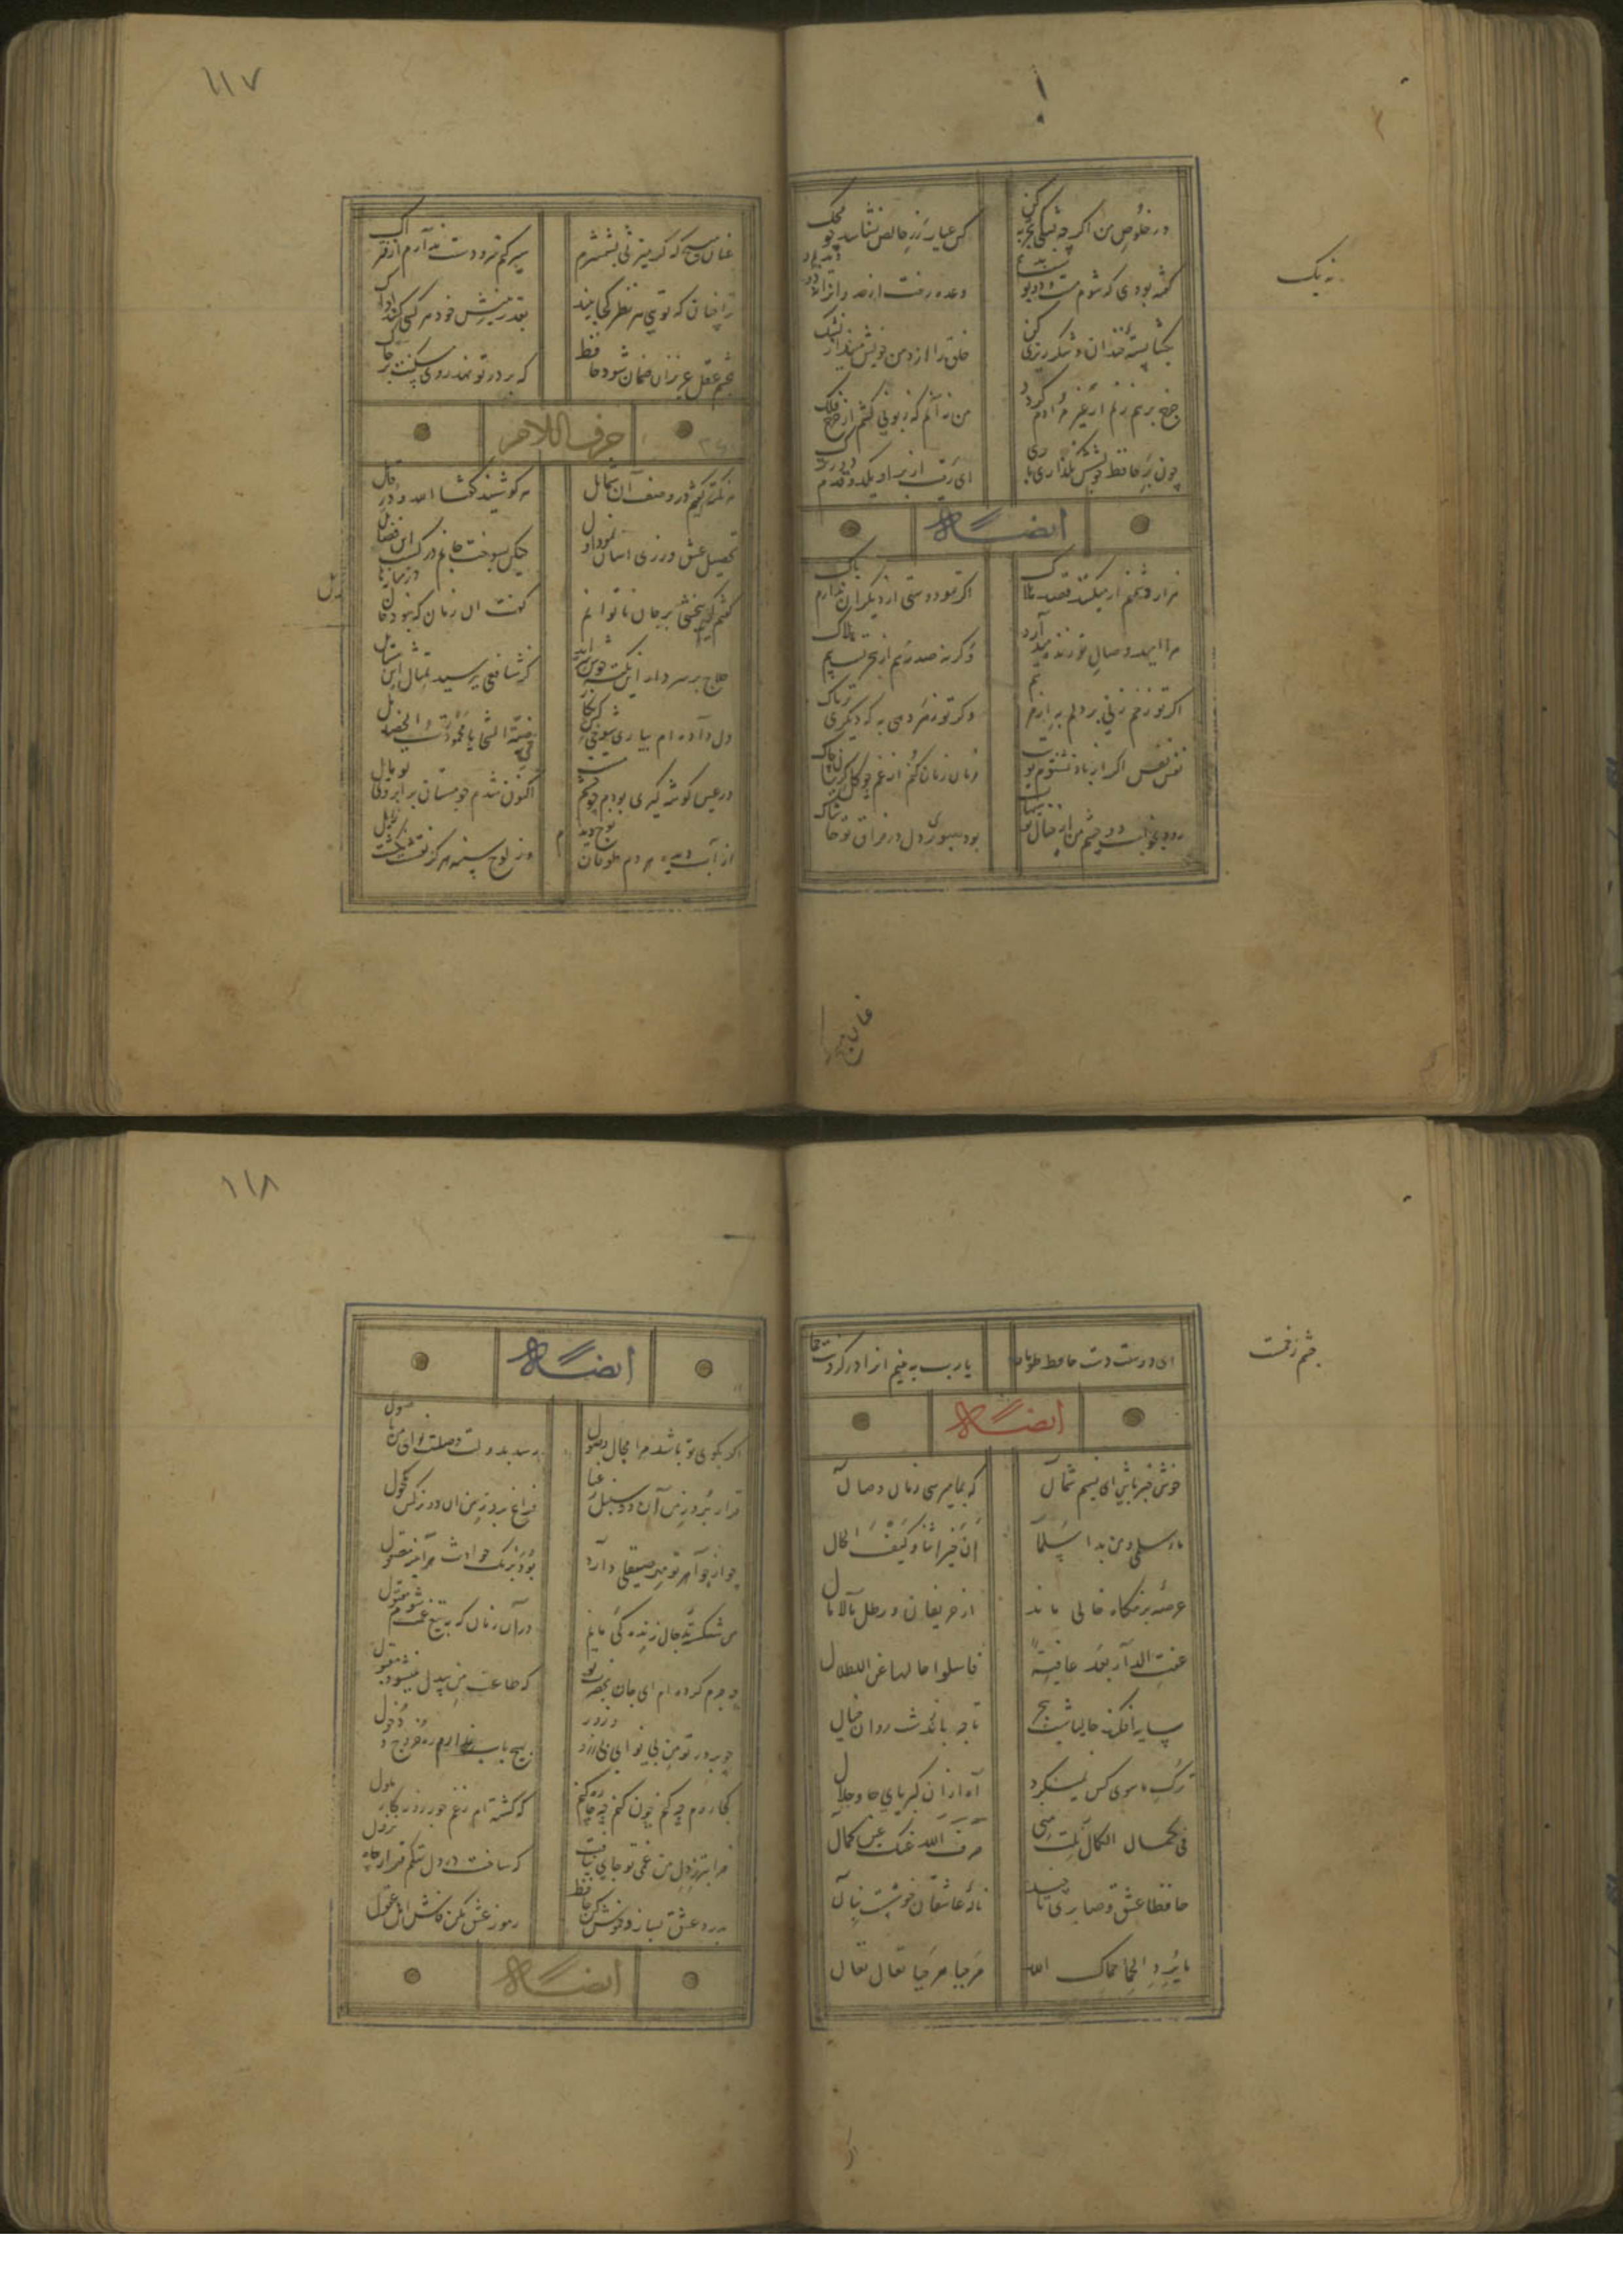 ۱۱۷
در خلوص من اگر چه شکی تجربه کن
کس عیار زر خالص نشناسد چو محک
گفته بودی که شوم مست و دو بوست بدهم
وعده رفت از حد و از ما نه دو دیدیم و
بگشا پسته خندان و شکر ریزی کن
خلق را از دهن خویش مینداز بشک
چرخ برهم زنم ار غیر مرادم گردد
من نه آنم که زبونی کشم از چرخ فلک
چون بر حافظ خویشش نگذاری باری
ای رقیب از بر او یکدو قدم دورترک
نه یک
ایضاً له
هزار دشمنم ار میکنند قصد هلاک
اگر تو دوستی از دیگران ندارم باک
مرا امید وصال تو زنده میدارد
وگرنه صد رهم از هجر تست بیم هلاک
اگر تو زخم زنی بر دلم به از مرهم
وگر تو زهر دهی به که دیگری تریاک
نفس نفس اگر از باد نشنوم بویت
زمان زمان کنم از غم چو گل گریبان چاک
رود بخواب دو چشم من از خیال تو هیهات
بود صبوری دل در فراق تو حاشاک
عنان مپیچ که گر میزنی بشمشیرم
سپر کنم سر و دستت ندارم از فتراک
ترا چنان که تویی هر نظر کجا بیند
بقدر بینش خود هر کسی کند ادراک
بچشم عقل عزیزان جهان شود حافظ
که بر در تو نهد روی مسکنت بر خاک
حرف اللام
هر نکته که گفتم در وصف آن شمایل
هر کو شنید گفتا لله در قایل
تحصیل عشق و رندی آسان نمود اول
جانم بسوخت در کسب این فضایل
گفتم که کی ببخشی بر جان ناتوانم
گفت آن زمان که نبود جان در میانه حایل
حلاج بر سر دار این نکته خوش سراید
کز شافعی نپرسید امثال این مسایل
دل داده ام بیاری شوخی کشی نگاری
مرضیة السجایا محمودة الخصایل
در عین گوشه گیری بودم چو چشم مستت
اکنون شدم چو مستان بر ابروی تو مایل
از آب دیده هر دم طوفان نوح دیدم
وز لوح سینه هرگز نقشت نگشت زایل
۱۱۸
ای دوست دست حافظ
یا رب به بینم آنرا در گردنت حمایل
چشم زخمت
ایضاً له
خوش خبر باش ای نسیم شمال
که بما میرسی زمان وصال
ما لسلمی و من بذی سلم
این جیراننا و کیف الحال
عرصه بزمگاه خالی ماند
از حریفان و رطل مالامال
عفت الدار بعد عافیة
فاسلوا حالها عن الاطلال
سایه افکند حالیا شب هجر
تا چه بازند شب روان خیال
ترک ما سوی کس نمینگرد
آه ازان کبریای جاه و جلال
فی کمال الکمال نلت منی
صرف الله عنک عین کمال
حافظا عشق و صابری تا چند
ناله عاشقان خوشست بنال
یا برید الحمی حماک الله
مرحبا مرحبا تعال تعال
ایضاً له
اگر بکوی تو باشد مرا مجال وصول
رسد بدولت وصلت نوای من باصول
قرار برده ز من آن دو سنبل رعنا
فراغ برده ز من آن دو نرگس مکحول
چو از جواهر مهر تو صیقلی دارد
بود ز زنگ حوادث هر آینه مصقول
من شکسته بدحال زندگی یابم
دران زمان که به تیغ غمت شوم مقتول
چه جرم کرده ام ای جان بحضرت تو
که طاعت من بیدل نمیشود مقبول
چو بر در تو من بی نوای بی زر و زور
بهیچ باب ندارم ره خروج و دخول
کجا روم چه کنم چون کنم چه چاره کنم
که گشته ام ز غم و جور روزگار ملول
خرابتر ز دل من غم تو جای نیافت
که ساخت در دل تنگم قرارگاه نزول
بدرد عشق بساز و خموش کن حافظ
رموز عشق مکن فاش اهل عقول
ایضاً له